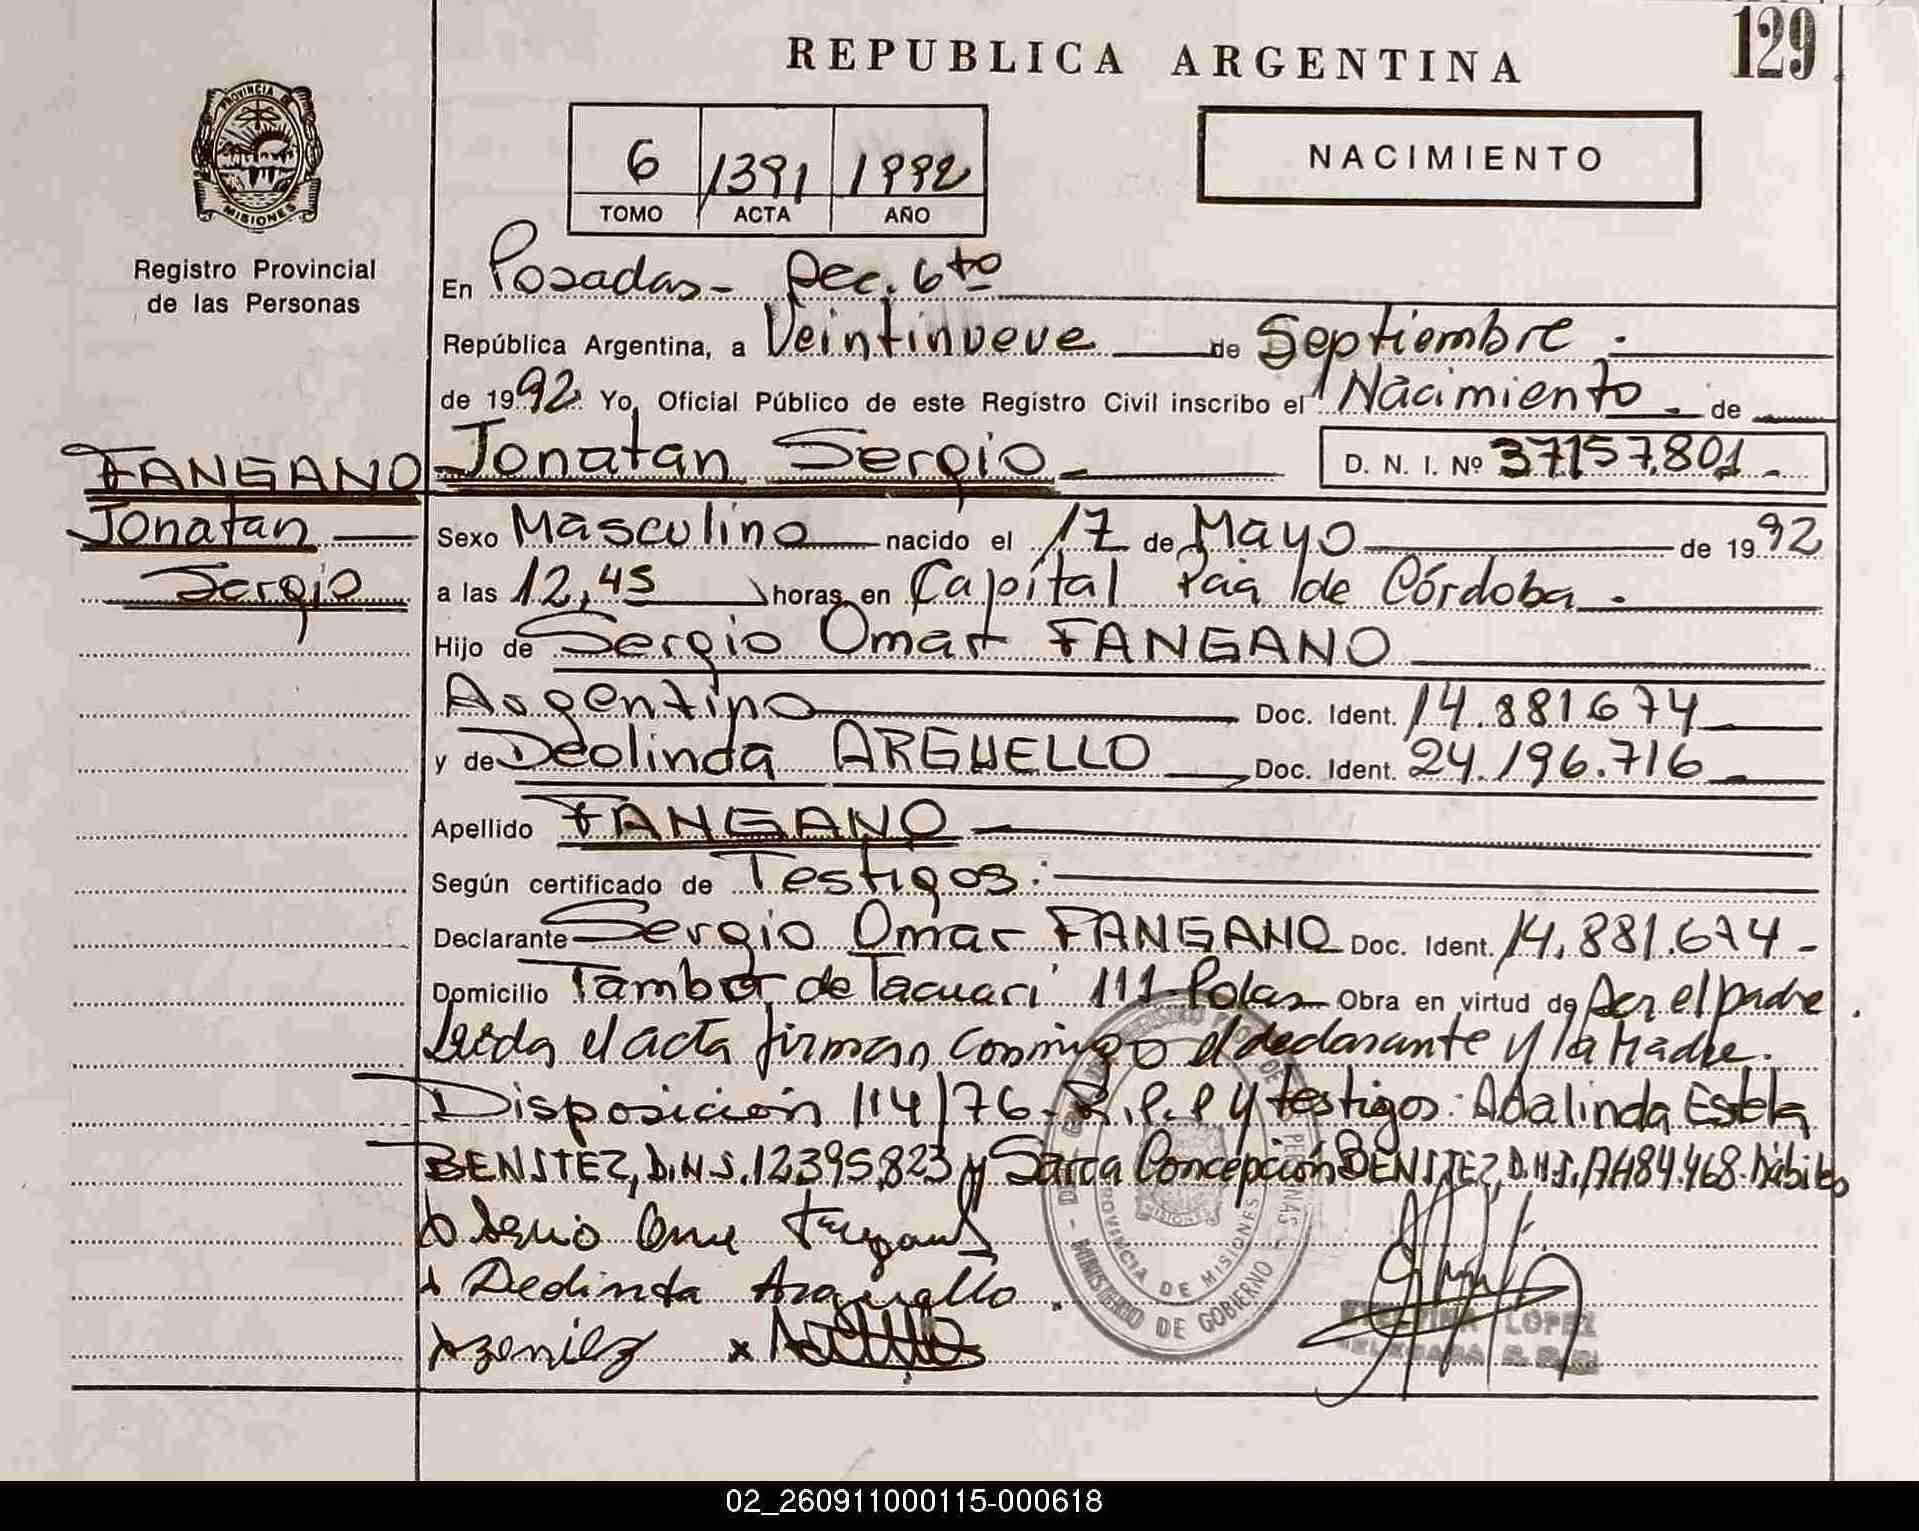 129
REPUBLICA ARGENTINA
PROVINCIA DE
MISIONES
Registro Provincial
de las Personas
6 1391 1992
TOMO ACTA AÑO
NACIMIENTO
En Posadas- Sec. 6to
República Argentina, a Veintinueve de Septiembre.-
de 1992 Yo, Oficial Público de este Registro Civil inscribo el Nacimiento. de
FANGANO Jonatan Sergio D. N. I. Nº 37157.801.-
Jonatan
Sergio
Sexo Masculino nacido el 17 de Mayo de 1992
a las 12,45 horas en Capital Pcia de Córdoba.-
Hijo de Sergio Omar FANGANO
Argentino Doc. Ident. 14.881674
y de Deolinda ARGUELLO Doc. Ident. 24.196.716
Apellido FANGANO
Según certificado de Testigos:
Declarante Sergio Omar FANGANO Doc. Ident. 14.881.674-
Domicilio Tambor de Tacuari 111- Obra en virtud de Ser el padre.
Leída el acta firman conmigo el declarante y la Madre.
Disposición 114/76. R.P.P y testigos: Adalinda Estela
BENITEZ, D.N.I. 12.395.823 y Concepción BENITEZ, D.N.I.
Deolinda Arguello
MINISTERIO DE GOBIERNO
PROVINCIA DE MISIONES
LOPEZ
02_260911000115-000618